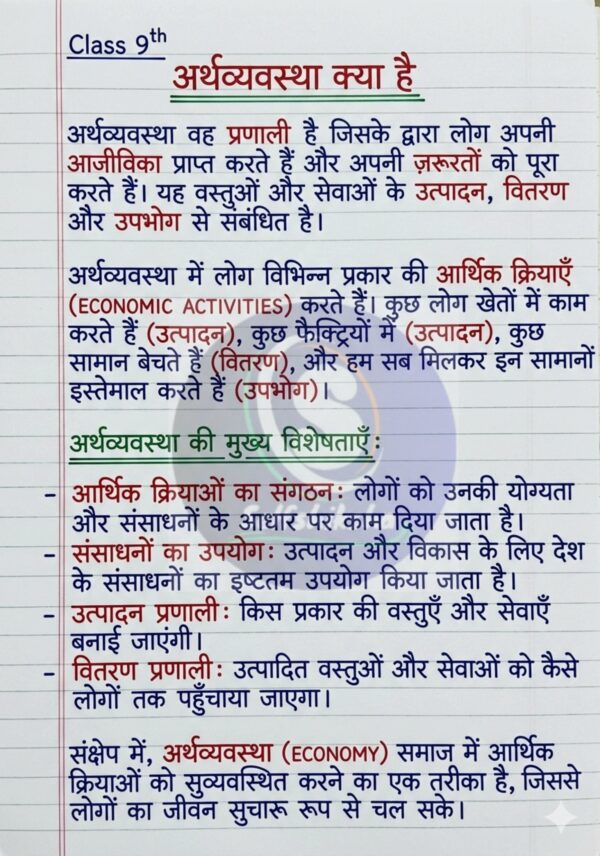 Class 9th
अर्थव्यवस्था क्या है
अर्थव्यवस्था वह प्रणाली है जिसके द्वारा लोग अपनी
आजीविका प्राप्त करते हैं और अपनी ज़रूरतों को पूरा
करते हैं। यह वस्तुओं और सेवाओं के उत्पादन, वितरण
और उपभोग से संबंधित है।
अर्थव्यवस्था में लोग विभिन्न प्रकार की आर्थिक क्रियाएँ
(ECONOMIC ACTIVITIES) करते हैं। कुछ लोग खेतों में काम
करते हैं (उत्पादन), कुछ फैक्ट्रियों में (उत्पादन), कुछ
सामान बेचते हैं (वितरण), और हम सब मिलकर इन सामानों
इस्तेमाल करते हैं (उपभोग)।
अर्थव्यवस्था की मुख्य विशेषताएँ:
- आर्थिक क्रियाओं का संगठन: लोगों को उनकी योग्यता
और संसाधनों के आधार पर काम दिया जाता है।
- संसाधनों का उपयोग: उत्पादन और विकास के लिए देश
के संसाधनों का इष्टतम उपयोग किया जाता है।
- उत्पादन प्रणाली: किस प्रकार की वस्तुएँ और सेवाएँ
बनाई जाएंगी।
- वितरण प्रणाली: उत्पादित वस्तुओं और सेवाओं को कैसे
लोगों तक पहुँचाया जाएगा।
संक्षेप में, अर्थव्यवस्था (ECONOMY) समाज में आर्थिक
क्रियाओं को सुव्यवस्थित करने का एक तरीका है, जिससे
लोगों का जीवन सुचारू रूप से चल सके।